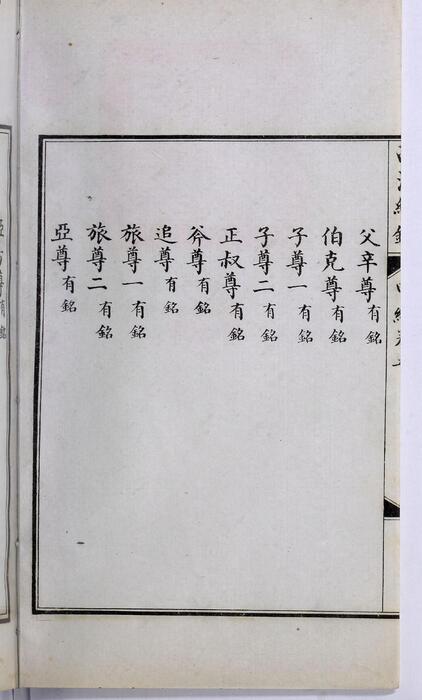 父辛尊有銘
伯克尊有銘
子尊一有銘
子尊二有銘
正叔尊有銘
斧尊有銘
追尊有銘
旅尊一有銘
旅尊二有銘
亞尊有銘